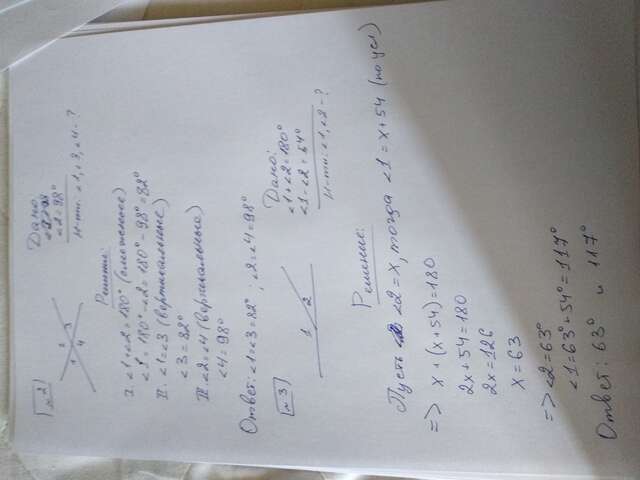 №2
Дано:
∠2=98°
Н-ти: ∠1, ∠3, ∠4 - ?
2
1 3
4
Решение:
I. ∠1+∠2=180° (смежные)
∠1=180°-∠2=180°-98°=82°
II. ∠1=∠3 (вертикальные)
∠3=82°
III. ∠2=∠4 (вертикальные)
∠4=98°
Ответ: ∠1=∠3=82°; ∠2=∠4=98°
№3
Дано:
∠1+∠2=180°
∠1-∠2=54°
Н-ти: ∠1, ∠2 - ?
1 2
Решение:
Пусть ∠2=x, тогда ∠1=x+54 (по усл)
=> x+(x+54)=180
2x+54=180
2x=126
x=63
=> ∠2=63°
∠1=63°+54°=117°
Ответ: 63° и 117°